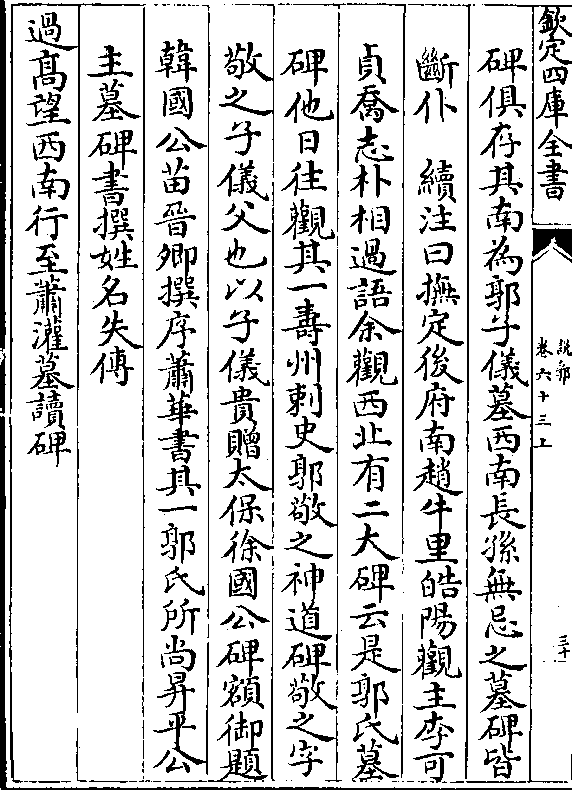 欽定四庫全書
説郛
卷六十三上
三十
碑俱存其南為郭子儀墓西南長孫無忌之墓碑皆
斷仆　續注曰撫定後府南趙牛里皓陽觀主李可
貞喬志朴相過語余觀西北有二大碑云是郭氏墓
碑他日往觀其一壽州刺史郭敬之神道碑敬之字
敬之子儀父也以子儀貴贈太保徐國公碑額御題
韓國公苗晉卿撰序蕭華書其一郭氏所尚昇平公
主墓碑書撰姓名失傳
過髙望西南行至蕭灌墓讀碑